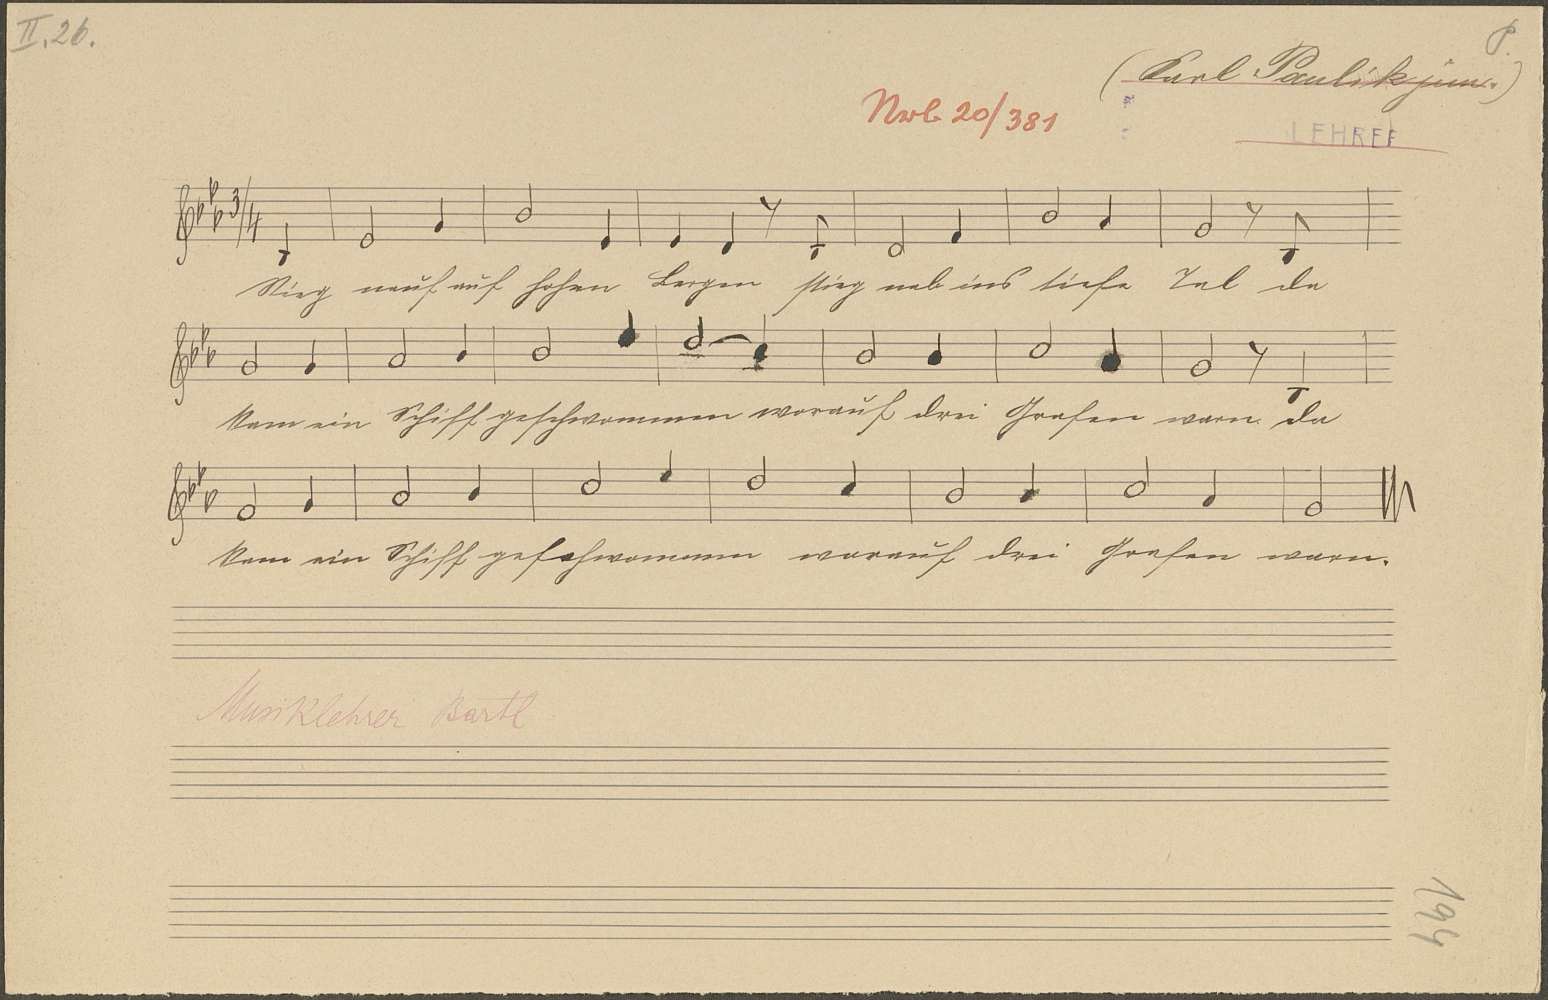 II.26.
P.
(Karl Paulik jun.)
Nrb 20/381
LEHRER
3/4
Stieg nauf auf hohen Bergen stieg nab ins tiefe Tal da
kam ein Schiff geschwommen worauf drei Grafen warn. da
kam ein Schiff geschwommen worauf drei Grafen warn.
Musiklehrer Bartl
194